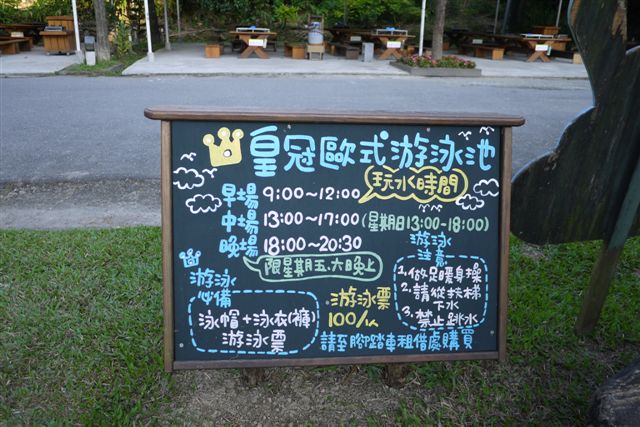 皇冠歐式游泳池
玩水時間
早場 9:00~12:00
中場 13:00~17:00 (星期日13:00-18:00)
晚場 18:00~20:30
限星期五、六晚上
游泳必備
泳帽+泳衣(褲)
游泳票
游泳票
100/人
游泳
注意
1. 做足暖身操
2. 請從扶梯
下水
3. 禁止跳水
請至腳踏車租借處購買